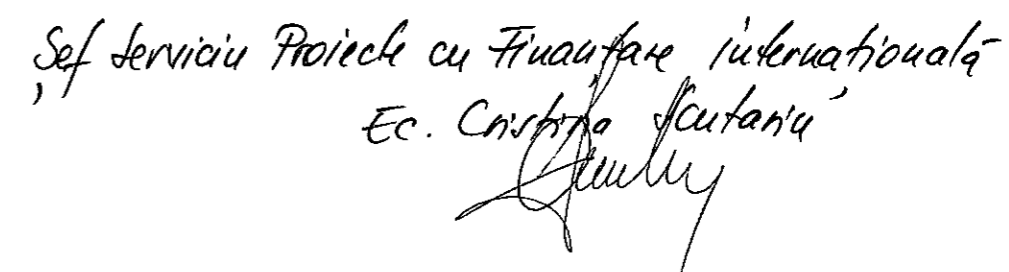 Șef Serviciu Proiecte cu Finanțare internațională
Ec. Cristina Scutariu